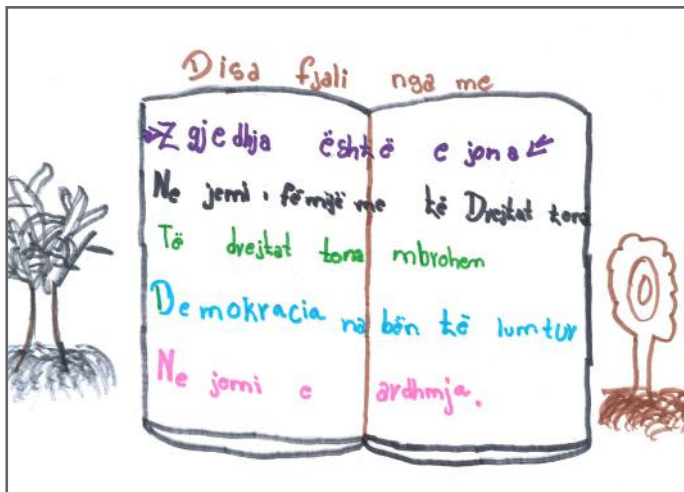 Disa fjali nga me
Zgjedhja është e jona
Ne jemi fëmijë me të Drejtat tona
Të drejtat tona mbrohen
Demokracia na bën të lumtur
Ne jemi e ardhmja.